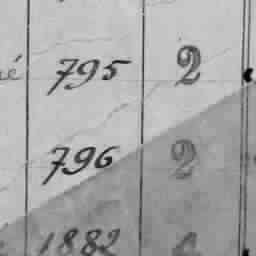 é 795 2
796 2
1882